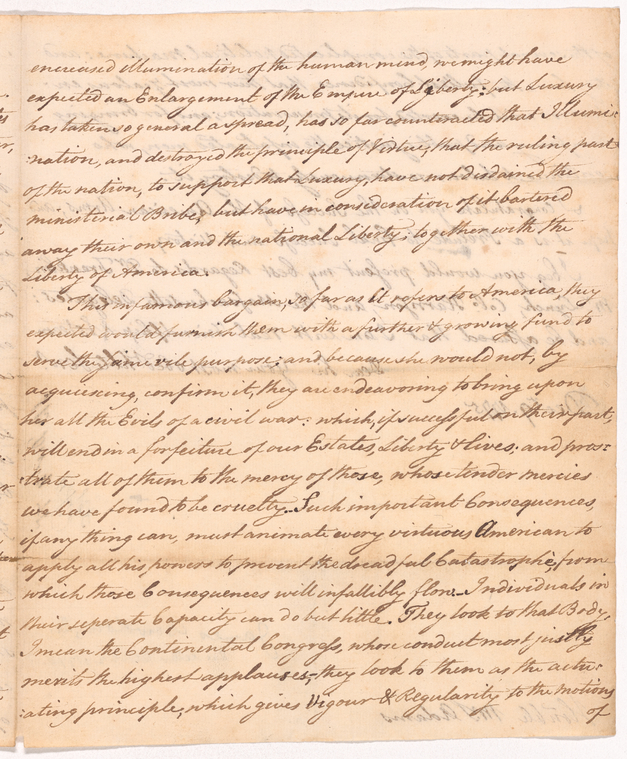 encreased illumination of the human mind, we might have
expected an Enlargement of the Empire of Liberty: but Luxury
has taken so general a spread, has so far counteracted that Illumi-
-nation, and destroyed the principle of Virtue, that the ruling part
of the nation, to support that Luxury, have not disdained the
ministerial Bribe; but have in consideration of it bartered
away their own and the national Liberty; together with the
Liberty of America.
This infamous bargain, so far as it refers to America, they
expected would furnish them with a further & growing fund to
serve the same vile purpose: and because she would not, by
acquiescing, confirm it, they are endeavoring to bring upon
her all the Evils of a civil war: which, if successful on their part,
will end in a forfeiture of our Estates, Liberty & lives: and pros=
trate all of them to the mercy of those, whose tender mercies
we have found to be cruelty. Such important Consequences,
if any thing can, must animate every virtuous American to
apply all his powers to prevent the dreadful Catastrophe, from
which those Consequences will infallibly flow. Individuals in
their seperate Capacity can do but little. They look to that Body,
I mean the Continental Congress, whose conduct most justly
merits the highest applauses; they look to them as the actu-
-ating principle, which gives Vigour & Regularity to the motions
of